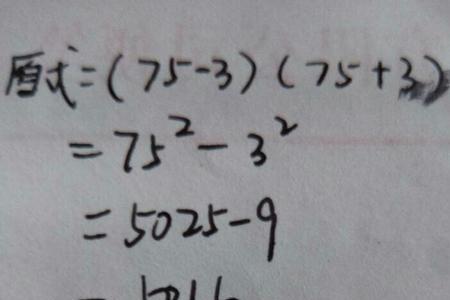 原式=(75-3)(75+3)
=75²-3²
=5025-9